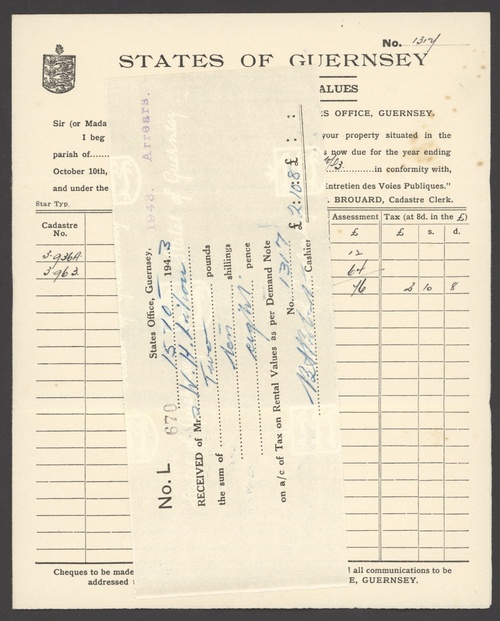 No. 1317
STATES OF GUERNSEY
ALUES
S OFFICE, GUERNSEY,
Sir (or Mada
I beg
your property situated in the
parish of......
s now due for the year ending
October 10th,
in conformity with,
and under the
Entretien des Voies Publiques."
. BROUARD, Cadastre Clerk.
Star Typ.
Cadastre No.
Assessment
Tax (at 8d. in the £)
£
£ s. d.
3936A
12
3963
64
76 2 10 8
Cheques to be made
addressed
l all communications to be
E, GUERNSEY.
1943. Arrears.
States Office, Guernsey,
15-10-1943
No. L 670
RECEIVED of Mr.
the sum of Two pounds
ten shillings
eight pence
on a/c of Tax on Rental Values as per Demand Note
No. 1317
£ 2:10:8
Cashier